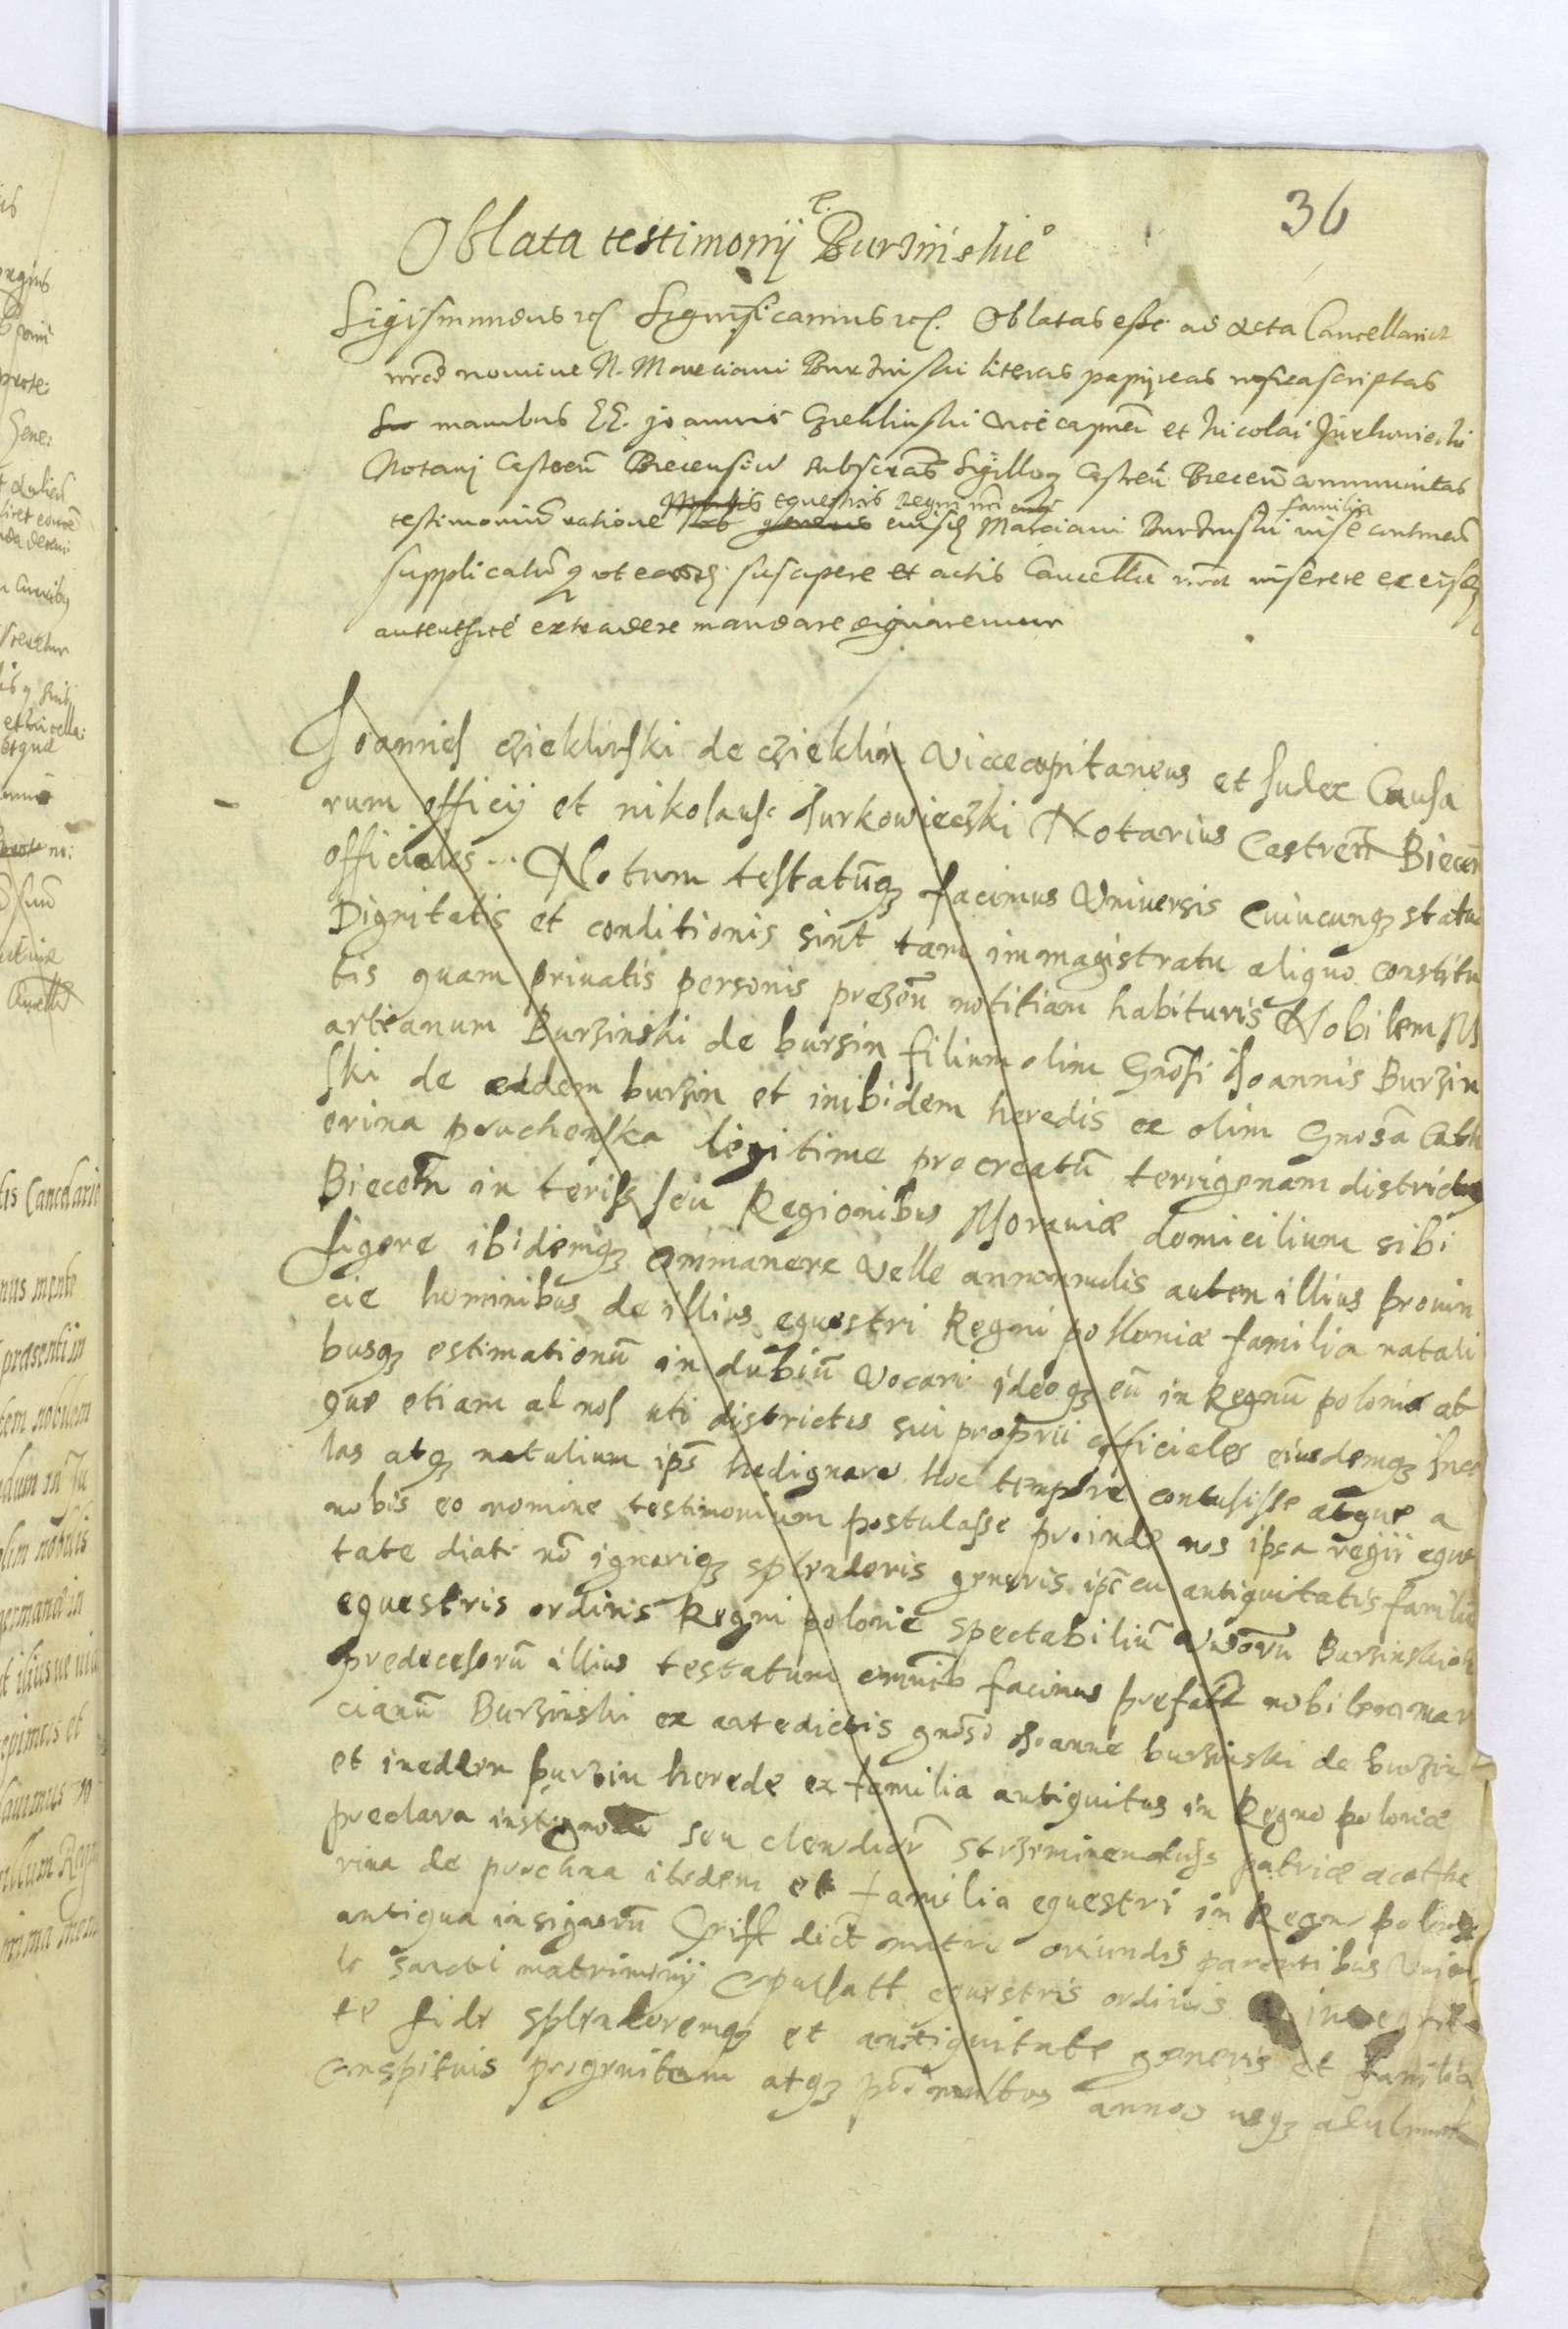 36
Oblata testimonij Burzinskie°
Sigismundus etc Significamus etc. Oblatas esse ad acta Cancellariæ
nrãe nomine N. Marciani Burzinski literas papyreas infrascriptas
manibus Joannis Czeklinski vicecapnei et Nicolai Jurkowiecki
Notarij Castreñ Biecensiu subscrãs Sigilloq Castreñ Bieceñ communitas
testimoniũ ratione equestris Regni nri familia
eiusdẽ Marciani Burzinski in se continen
supplicatũq ut easdẽ suscipere et actis Cancellæ nræ inserere ex eisdẽ
autentice extradere mandare dignaremur
Joannes czieklinski de czieklin Vicecapitaneus et Judex Causa
rum officij et nikolaus Jurkowieczki Notarius Castreñ Bieceñ
officiales Notum testatũqz facimus Universis cuiucunqz statu
Dignitatis et conditionis sint tam in magistratu aliquo constitu
tis quam priuatis personis prezeñ notitiam habituris Nobilem M
artianum Burzinski de burzin filium olim Gnosi Joannis Burzin
ski de eadem burzin et inibidem heredis ex olim Gnosa Cath
erina pruchenska legitime procreatũ terrigenam districtus
Bieceñ in teris seu Regionibus Morauiæ domicilium sibi
figere ibidemqz commanere Velle a nonnulis autem illius prouin
cie hominibus de illius equestri Regni polloniæ familia natali
busqz estimationũ in dubiũ Vocari ideoqz eũ in Regnũ poloniæ at
que etiam al nos uti districtus sui proprii officiales eiusdemqz inco
las atqz natalium ips hoc tempore contulisse atque a
nobis eo nomine testimonium postulasse proinde nos ipsa regii eque
tate diati nõ ignariqz splendoris generis antiquitatis familiæ
equestris ordinis Regni polonie spectabiliũ Virorũ Burzinskich
predecesorũ illius testatum facimus prefatũ nobilem mar
cianũ Burzinski ex antedictis gnoso Joanne burzinski de burzin
et in edem burzin herede ex familia antiquitus in Regno poloniæ
preclara seu clendior patriæ ac cathe
rina de pruchna itidem et familia equestri in Regno poloniæ
antiqua insignorũ Griff dict matre oriundis parentibus
lo sancti matrimonij equestris ordinis
te fide splendoremqz et antiquitate generis et familia
conspituis progenitum atqz multos annos usqz